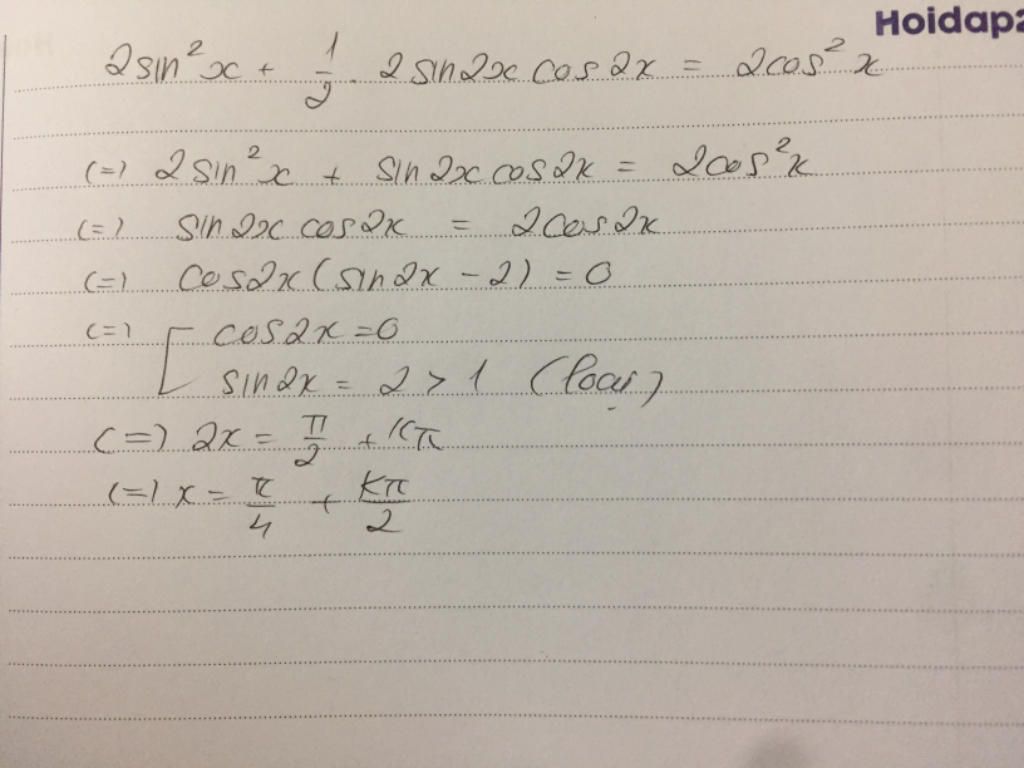 Hoidap2
2sin²x + 1/2 . 2sin2x cos2x = 2cos²x
(=) 2sin²x + sin2x cos2x = 2cos²x
(=) sin2x cos2x = 2cos2x
(=) cos2x(sin2x - 2) = 0
(=) [ cos2x = 0
sin2x = 2 > 1 (loại)
(=) 2x = π/2 + kπ
(=) x = π/4 + kπ/2